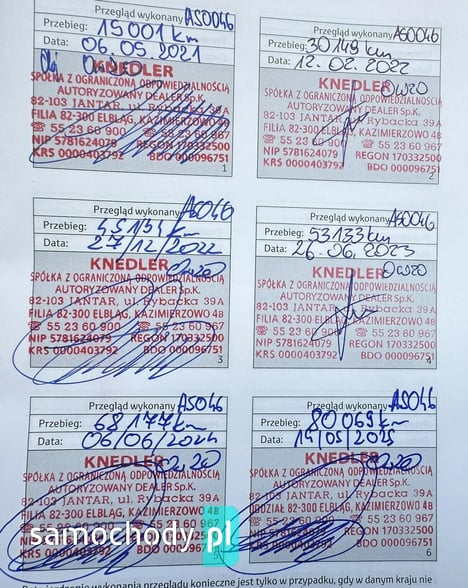 Przegląd wykonany ASO046
Przebieg: 15001 km
Data: 06.05.2021
KNEDLER
SPÓŁKA Z OGRANICZONĄ ODPOWIEDZIALNOŚCIĄ
AUTORYZOWANY DEALER Sp.K.
82-103 JANTAR, ul. Rybacka 39A
FILIA 82-300 ELBLĄG, KAZIMIERZOWO 4B
☎ 55 23 60 900 ☎ 55 23 60 967
NIP 5781624079 REGON 170332500
KRS 0000403792 BDO 000096751
1
Przegląd wykonany ASO046
Przebieg: 30149 km
Data: 12.02.2022
KNEDLER 0W20
SPÓŁKA Z OGRANICZONĄ ODPOWIEDZIALNOŚCIĄ
AUTORYZOWANY DEALER Sp.K.
82-103 JANTAR, ul. Rybacka 39A
FILIA 82-300 ELBLĄG, KAZIMIERZOWO 4B
☎ 55 23 60 900 ☎ 55 23 60 967
NIP 5781624079 REGON 170332500
KRS 0000403792 BDO 000096751
2
Przegląd wykonany ASO046
Przebieg: 45134 km
Data: 27/12/2022
KNEDLER 0W20
SPÓŁKA Z OGRANICZONĄ ODPOWIEDZIALNOŚCIĄ
AUTORYZOWANY DEALER Sp.K.
82-103 JANTAR, ul. Rybacka 39A
FILIA 82-300 ELBLĄG, KAZIMIERZOWO 4B
☎ 55 23 60 900 ☎ 55 23 60 967
NIP 5781624079 REGON 170332500
KRS 0000403792 BDO 000096751
3
Przegląd wykonany ASO046
Przebieg: 53133 km
Data: 26.06.2023
KNEDLER 0W20
SPÓŁKA Z OGRANICZONĄ ODPOWIEDZIALNOŚCIĄ
AUTORYZOWANY DEALER Sp.K.
82-103 JANTAR, ul. Rybacka 39A
FILIA 82-300 ELBLĄG, KAZIMIERZOWO 4B
☎ 55 23 60 900 ☎ 55 23 60 967
NIP 5781624079 REGON 170332500
KRS 0000403792 BDO 000096751
4
Przegląd wykonany ASO46
Przebieg: 68177 km
Data: 06/06/2024
KNEDLER 0W20
SPÓŁKA Z OGRANICZONĄ ODPOWIEDZIALNOŚCIĄ
AUTORYZOWANY DEALER Sp.K.
82-103 JANTAR, ul. Rybacka 39A
FILIA 82-300 ELBLĄG, KAZIMIERZOWO 4B
☎ 55 23 60 900 ☎ 55 23 60 967
KRS 0000403792
5
Przegląd wykonany ASO46
Przebieg: 80069 km
Data: 14/05/2025
KNEDLER 0W20
SPÓŁKA Z OGRANICZONĄ ODPOWIEDZIALNOŚCIĄ
AUTORYZOWANY DEALER Sp.K.
82-103 JANTAR, ul. Rybacka 39A
ODDZIAŁ 82-300 ELBLĄG, KAZIMIERZOWO 4B
☎ 55 23 60 900 ☎ 55 23 60 967
REGON 170332500
BDO 000096751
6
samochody.pl
wykonania przeglądu konieczne jest tylko w przypadku, gdy w danym kraju nie